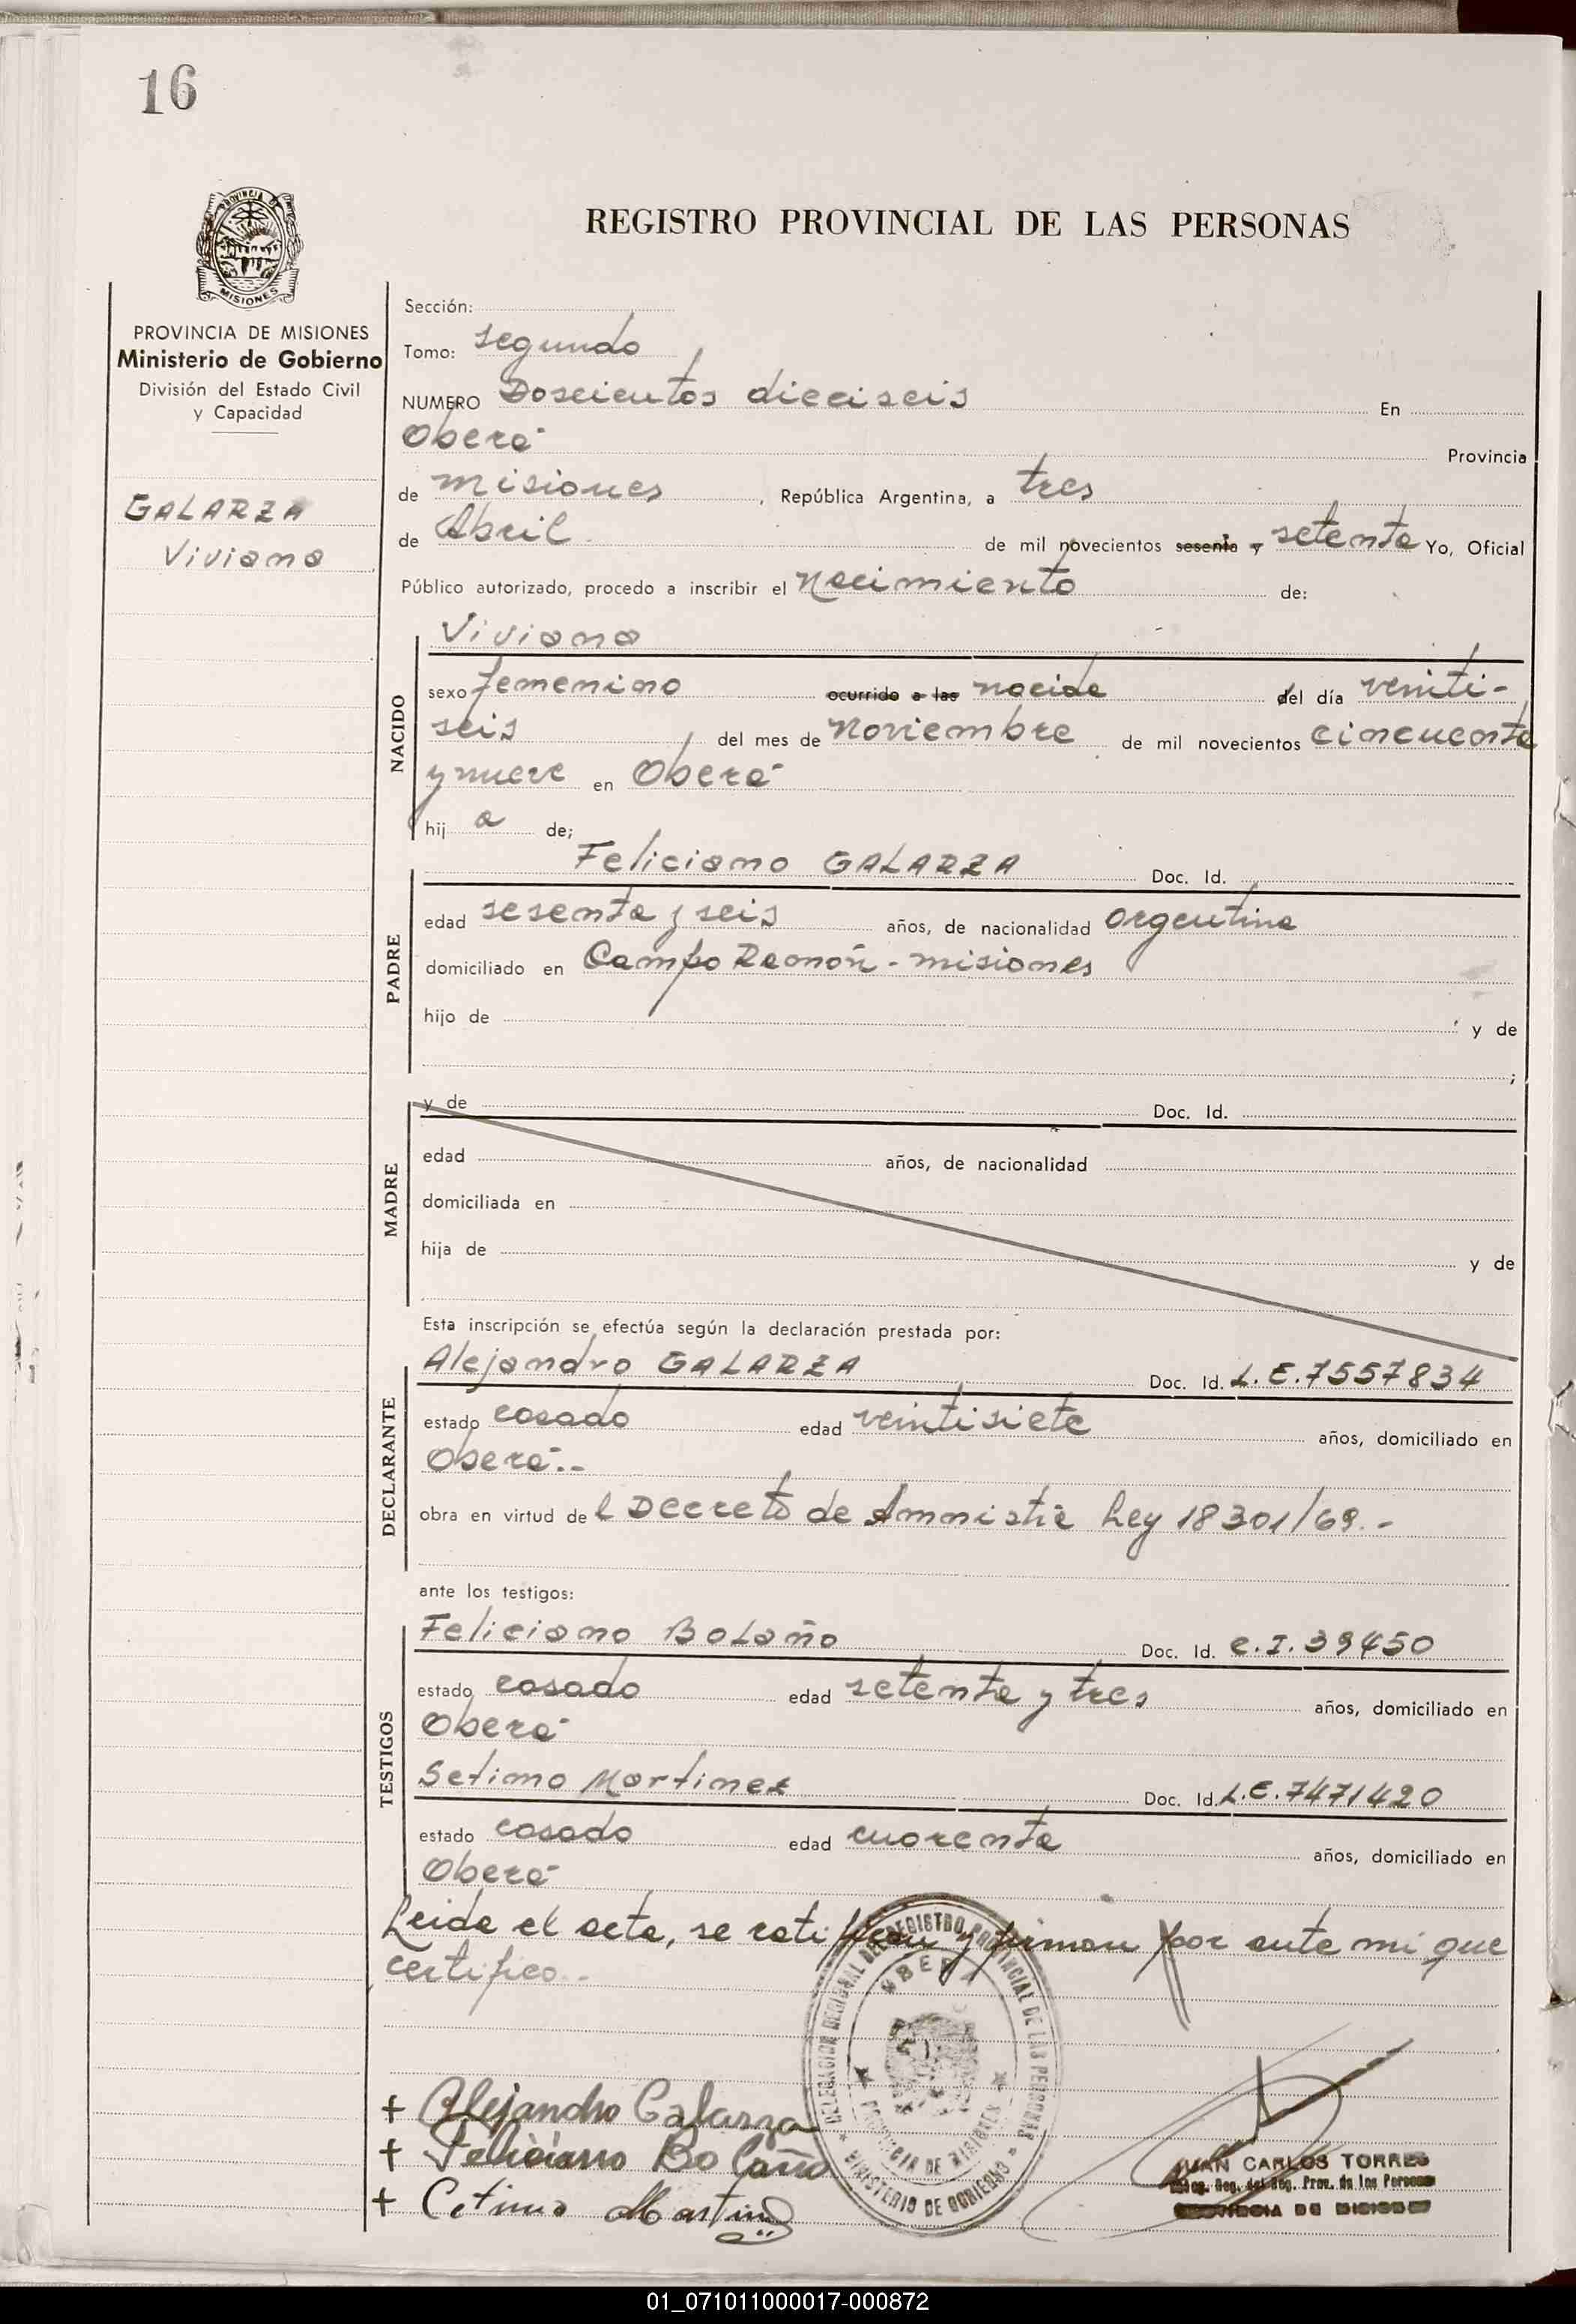 16
PROVINCIA DE
MISIONES
REGISTRO PROVINCIAL DE LAS PERSONAS
PROVINCIA DE MISIONES
Ministerio de Gobierno
División del Estado Civil
y Capacidad
GALARZA
Viviana
Sección:
Tomo: segundo
NUMERO Doscientos dieciseis En
Oberá Provincia
de Misiones, República Argentina, a tres
de Abril de mil novecientos sesenta y setenta Yo, Oficial
Público autorizado, procedo a inscribir el Nacimiento de:
NACIDO
Viviana
sexo femenino ocurrido a las nacida del día veinti-
seis del mes de Noviembre de mil novecientos cincuenta
y nueve en Oberá
hij a de;
PADRE
Feliciano GALARZA Doc. Id.
edad sesenta y seis años, de nacionalidad argentina
domiciliado en Campo Ramón - Misiones
hijo de y de
;
MADRE
y de Doc. Id.
edad años, de nacionalidad
domiciliada en
hija de y de
Esta inscripción se efectúa según la declaración prestada por:
DECLARANTE
Alejandro GALARZA Doc. Id. L.E.7557834
estado casado edad veintisiete años, domiciliado en
Oberá.-
obra en virtud de l Decreto de Amnistía Ley 18301/69.-
ante los testigos:
TESTIGOS
Feliciano BOLaño Doc. Id. C.I.39450
estado casado edad setenta y tres años, domiciliado en
Oberá
Setimo Martinez Doc. Id. L.E.7471420
estado casado edad cuarenta años, domiciliado en
Oberá
Leida el acta, se ratifican y firman por ante mi que
certifico.-
DELEGACION REGIONAL DEL REGISTRO PROVINCIAL DE LAS PERSONAS
OBERA
PROVINCIA DE MISIONES
MINISTERIO DE GOBIERNO
+ Alejandro Galarza
+ Feliciano Bolaño
+ Cetimo Martinez
JUAN CARLOS TORRES
Reg. del Reg. Prov. de las Personas
PROVINCIA DE MISIONES
01_071011000017-000872